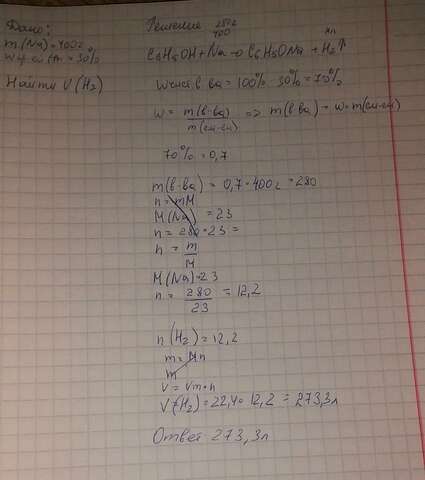 Дано:
m(Na)=400г
w = 30%
Найти V(H₂)
Решение
280г
400
xл
C₆H₅OH+Na→C₆H₅ONa + H₂↑
w чист в ва = 100% 30% = 70%
w = m(в-ва) / m(см-си) => m(в ва) = w·m(см-си)
70% = 0,7
m(в-ва) = 0,7·400г = 280
n = mM
M(Na) = 23
n = 280·23 =
n = m / M
M(Na)=23
n = 280 / 23 = 12,2
n(H₂) = 12,2
m = Mn
m
V = Vm·n
V(H₂) = 22,4·12,2 = 273,3л
Ответ 273,3л